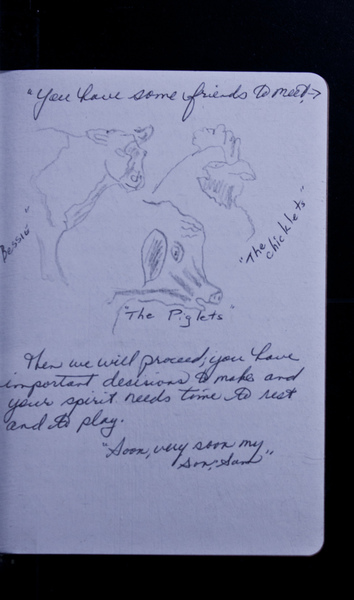 "You have some friends to meet,→
"Bessie"
"The chicklets"
"The Piglets"
Then we will proceed, you have
important decisions to make and
your spirit needs time to rest
and to play.
"Soon, very soon my
son, Sam"